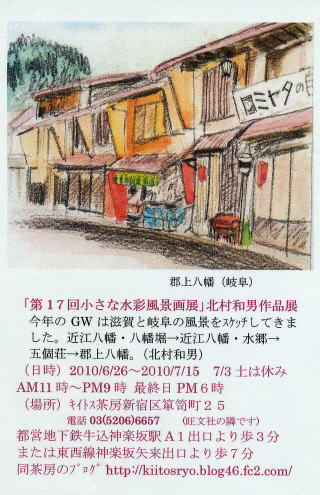 ミヤタの自
郡上八幡（岐阜）
「第１７回小さな水彩風景画展」北村和男作品展
今年のＧＷは滋賀と岐阜の風景をｽｹｯﾁしてきま
した。近江八幡・八幡堀→近江八幡・水郷→
五個荘→郡上八幡。（北村和男）
（日時）2010/6/26～2010/7/15　7/3 土は休み
AM11 時～PM9 時 最終日 PM６時
（場所）ｷｲﾄｽ茶房新宿区箪笥町２５
電話 03(5206)6657　（旺文社の隣です）
都営地下鉄牛込神楽坂駅Ａ１出口より歩３分
または東西線神楽坂矢来出口より歩７分
同茶房のﾌﾞﾛｸﾞ http://kiitosryo.blog46.fc2.com/